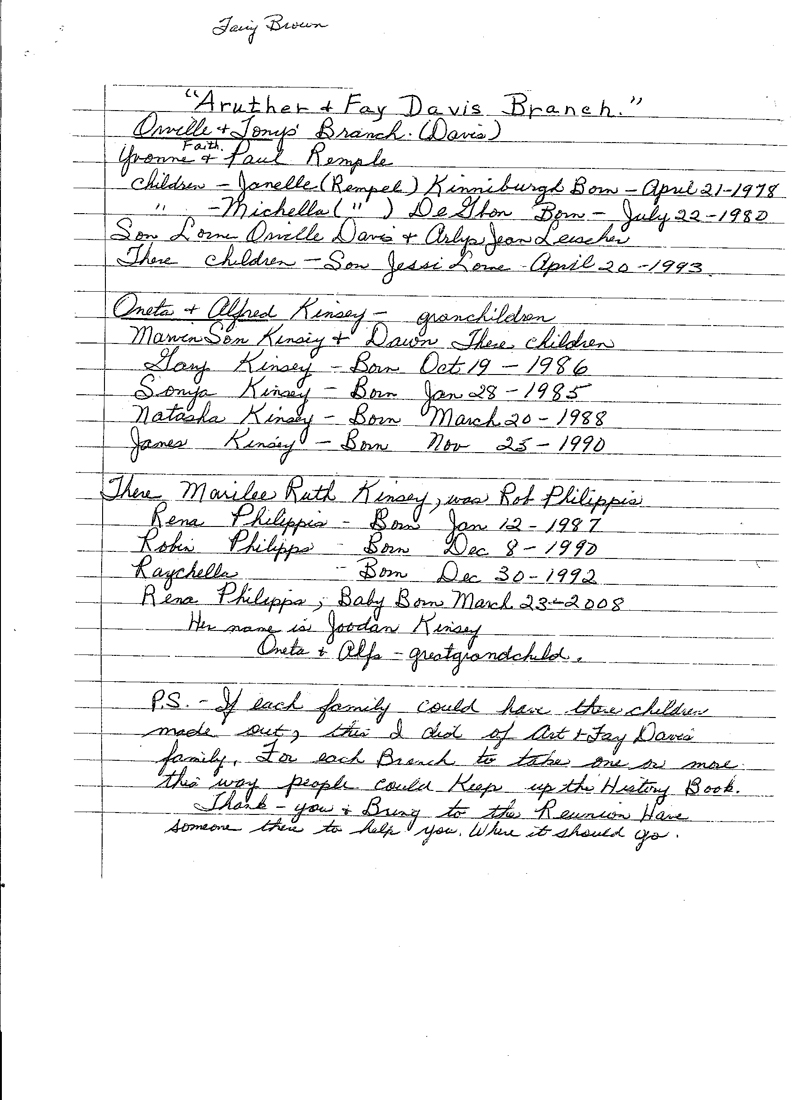 Brown
"Aruther + Fay Davis Branch."
Orville + Tonys' Branch. (Davis)
Yvonne Faith + Paul Remple
children - Janelle (Rempel) Kinniburgh Born - April 21-1978
" - Michella ( " ) De Born - July 22-1980
Son Lorne Orville Davis + Arlys Jean Leischer
There children - Son Jessi Lorne April 20-1993
Oneta + Alfred Kinsey - granchildren
Marvin Son Kinsey + Dawn There children
Gary Kinsey - Born Oct 19 - 1986
Sonya Kinsey - Born Jan 28 - 1985
Natasha Kinsey - Born March 20 - 1988
James Kinsey - Born Nov 25 - 1990
There Marilee Ruth Kinsey, was Rob Philippis
Rena Philippis - Born Jan 12 - 1987
Robin Philipps - Born Dec 8 - 1990
Raychella - Born Dec 30 - 1992
Rena Philipps, Baby Born March 23-2008
Her name is Joodan Kinsey
Oneta + Alfs - greatgrandchild.
P.S. - If each family could have there children
made out, this I did of Art + Fay Davis
family. For each Branch to take one or more
this way people could Keep up the History Book.
Thank - you + Bring to the Reunion Have
someone there to help you. Where it should go.